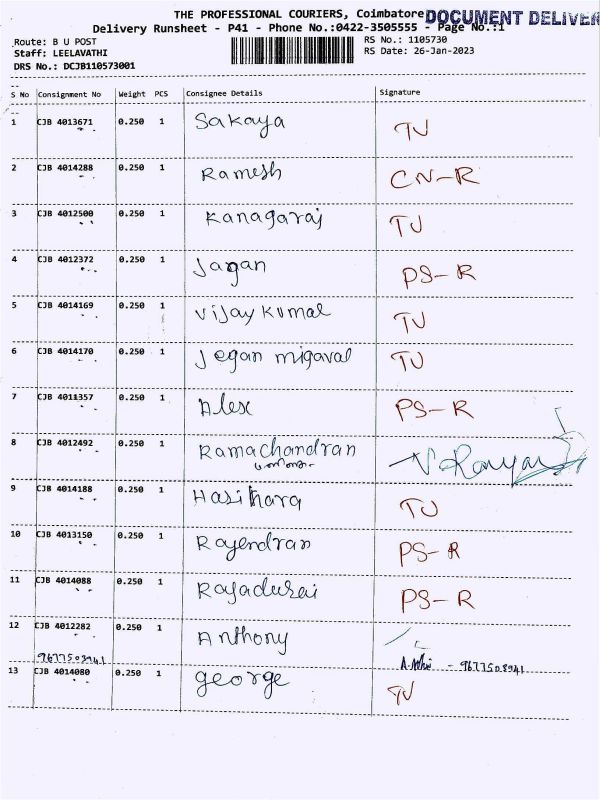 THE PROFESSIONAL COURIERS, Coimbatore DOCUMENT DELIVER
Delivery Runsheet - P41 - Phone No.:0422-3505555 - Page No.:1
Route: B U POST RS No.: 1105730
Staff: LEELAVATHI RS Date: 26-Jan-2023
DRS No.: DCJB110573001
S No Consignment No Weight PCS Consignee Details Signature
1 CJB 4013671 0.250 1 Sakaya TU
2 CJB 4014288 0.250 1 Ramesh CN-R
3 CJB 4012500 0.250 1 Kanagaraj TU
4 CJB 4012372 0.250 1 Jagan PS-R
5 CJB 4014169 0.250 1 Vijay Kumal TU
6 CJB 4014170 0.250 1 Jegan migaval TU
7 CJB 4011357 0.250 1 Alex PS-R
8 CJB 4012492 0.250 1 Ramachandran
9 CJB 4014188 0.250 1 Hasihara TU
10 CJB 4013150 0.250 1 Rajendran PS-R
11 CJB 4014088 0.250 1 Rajadurai PS-R
12 CJB 4012282 0.250 1 Anthony
9677503941 - 9677503941
13 CJB 4014080 0.250 1 george TU